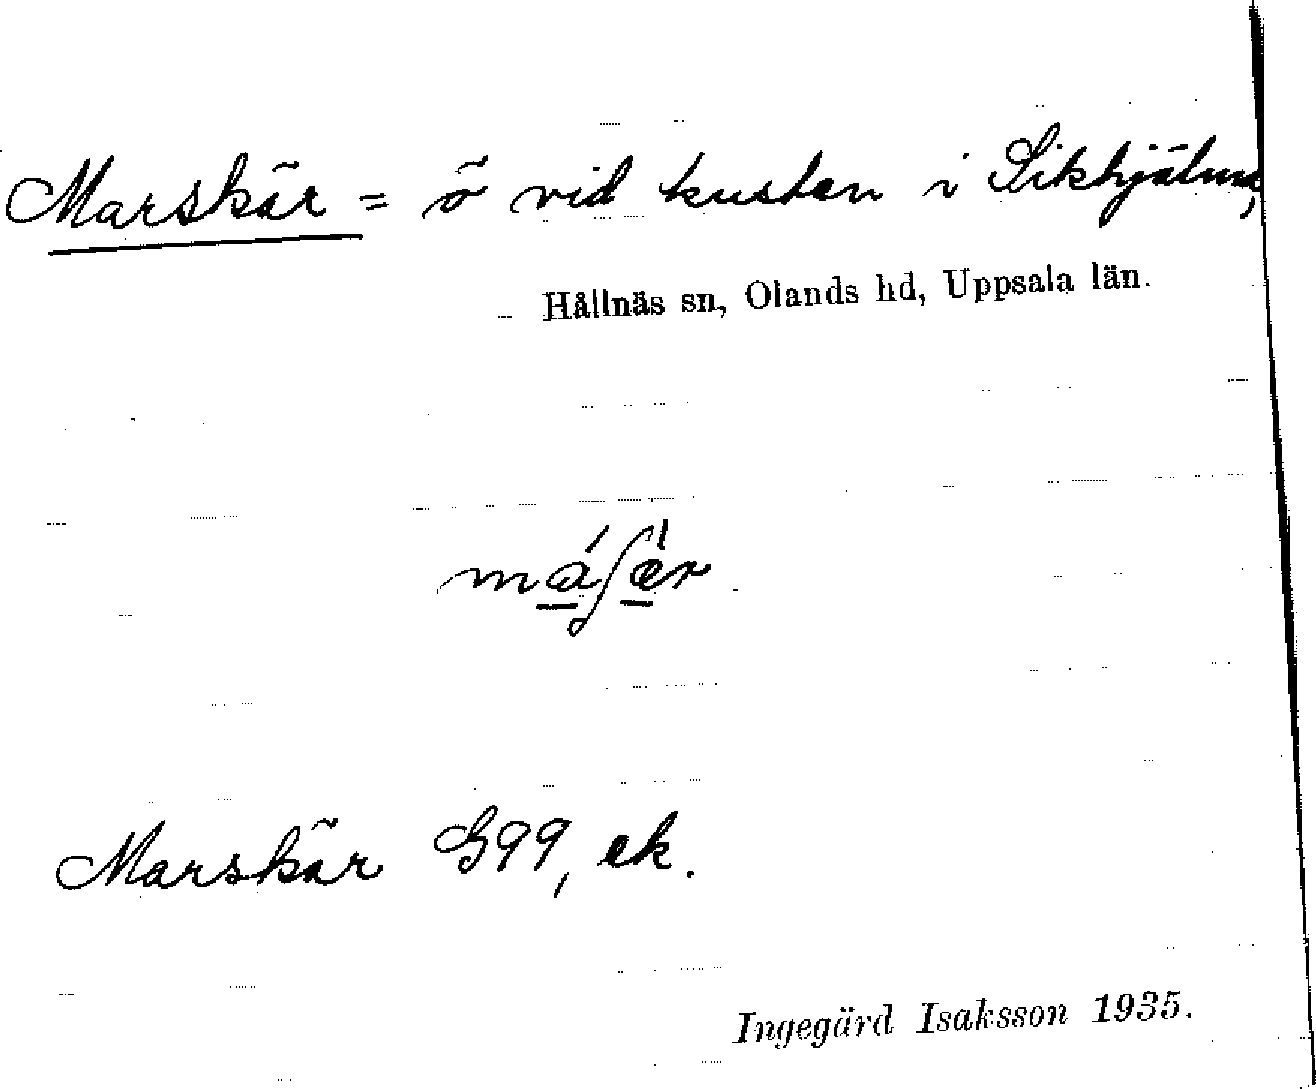 Marskär = ö vid kusten i Sikhjälma,
Hållnäs sn, Olands hd, Uppsala län.
máʃæ̀r
Marskär G99, ek.
Ingegärd Isaksson 1935.